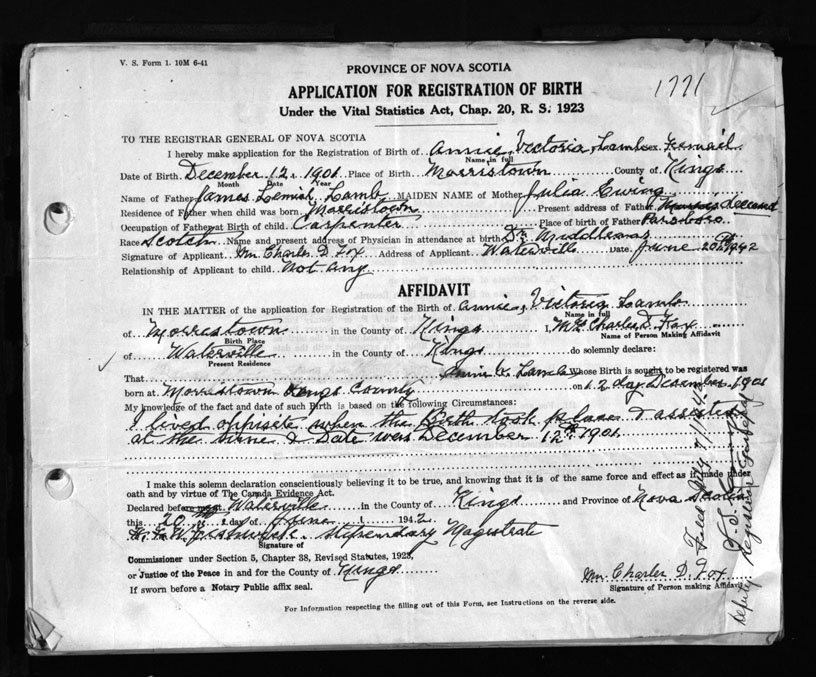 V. S. Form 1. 10M 6-41
PROVINCE OF NOVA SCOTIA
1771
APPLICATION FOR REGISTRATION OF BIRTH
Under the Vital Statistics Act, Chap. 20, R. S. 1923
TO THE REGISTRAR GENERAL OF NOVA SCOTIA
I hereby make application for the Registration of Birth of Annie Victoria Lamb sex Female
Name in full
Date of Birth December 12 1901 Place of Birth Morristown County of Kings
Month Date Year
Name of Father James Lamb MAIDEN NAME of Mother Julia Ewing
Residence of Father when child was born Morristown Present address of Father Deceased
Occupation of Father at Birth of child Carpenter Place of birth of Father Parsboro
Race Scotch Name and present address of Physician in attendance at birth Dr Middlemas
Signature of Applicant Mrs Charles D Fox Address of Applicant Waterville Date June 20th 1942
Relationship of Applicant to child Not any
AFFIDAVIT
IN THE MATTER of the application for Registration of the Birth of Annie Victoria Lamb
Name in full
of Morristown in the County of Kings I, Mrs Charles D Fox
Birth Place Name of Person Making Affidavit
of Waterville in the County of Kings do solemnly declare:
Present Residence
That Annie V. Lamb Whose Birth is sought to be registered was
born at Morristown Kings County on 12 day December 1901
My knowledge of the fact and date of such Birth is based on the following Circumstances:
I lived opposite when the Birth took place & assisted
at the time & Date was December 12th 1901
I make this solemn declaration conscientiously believing it to be true, and knowing that it is of the same force and effect as if made under
oath and by virtue of The Canada Evidence Act.
Declared before me at Waterville in the County of Kings and Province of Nova Scotia
this 20 day of June 1942
Stipendiary Magistrate
Signature of
Commissioner under Section 5, Chapter 38, Revised Statutes, 1923,
or Justice of the Peace in and for the County of Kings
Mrs Charles D. Fox
If sworn before a Notary Public affix seal.
Signature of Person making Affidavit
For Information respecting the filling out of this Form, see Instructions on the reverse side.
Deputy Registrar General